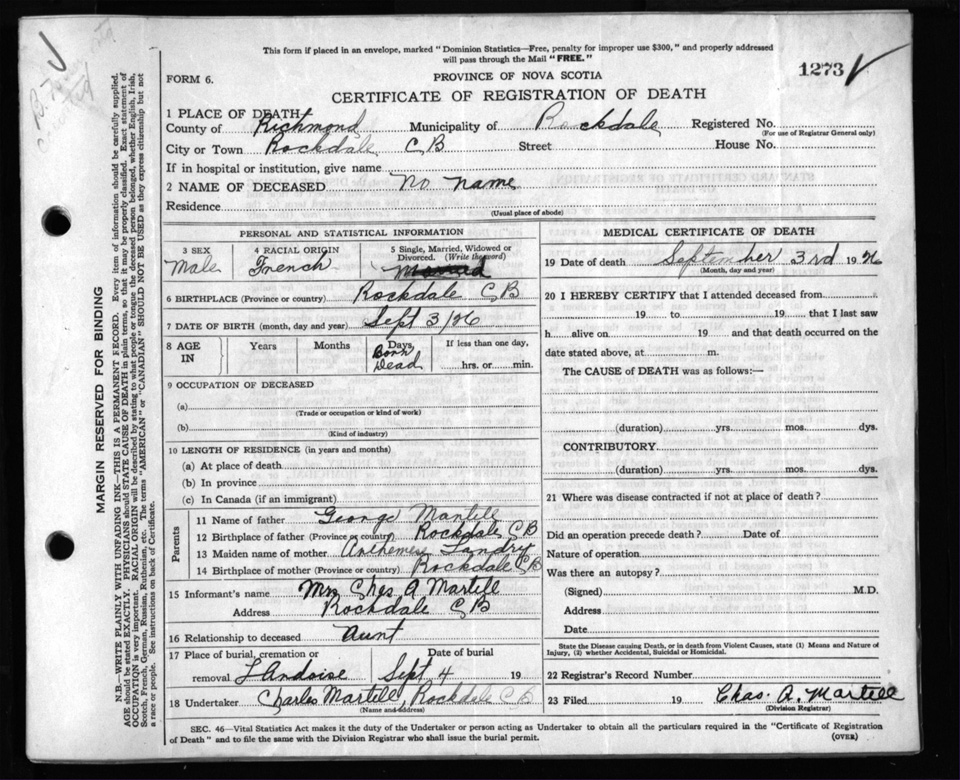 This form if placed in an envelope, marked "Dominion Statistics—Free, penalty for improper use $300," and properly addressed
will pass through the Mail "FREE."
1273
FORM 6.
PROVINCE OF NOVA SCOTIA
CERTIFICATE OF REGISTRATION OF DEATH
1 PLACE OF DEATH
County of Richmond Municipality of Rockdale Registered No.
(For use of Registrar General only)
City or Town Rockdale C B Street House No.
If in hospital or institution, give name
2 NAME OF DECEASED No name
Residence
(Usual place of abode)
PERSONAL AND STATISTICAL INFORMATION
3 SEX 4 RACIAL ORIGIN 5 Single, Married, Widowed or
Divorced. (Write the word)
Male French Married
6 BIRTHPLACE (Province or country) Rockdale C B
7 DATE OF BIRTH (month, day and year) Sept 3/26
8 AGE IN Years Months Days, If less than one day,
Born Dead hrs. or min.
9 OCCUPATION OF DECEASED
(a)
(Trade or occupation or kind of work)
(b)
(Kind of industry)
10 LENGTH OF RESIDENCE (in years and months)
(a) At place of death
(b) In province
(c) In Canada (if an immigrant)
Parents
11 Name of father George Martell
12 Birthplace of father (Province or country) Rockdale C B
13 Maiden name of mother Landry
14 Birthplace of mother (Province or country) Rockdale C B
15 Informant's name Mrs Chas A Martell
Address Rockdale C B
16 Relationship to deceased Aunt
17 Place of burial, cremation or Date of burial
removal L'Ardoise Sept 4 19
18 Undertaker Charles Martell, Rockdale C B
(Name and address)
MEDICAL CERTIFICATE OF DEATH
19 Date of death September 3rd 1926
(Month, day and year)
20 I HEREBY CERTIFY that I attended deceased from
19 to 19 that I last saw
h alive on 19 and that death occurred on the
date stated above, at m.
The CAUSE of DEATH was as follows:—
(duration) yrs. mos. dys.
CONTRIBUTORY.
(duration) yrs. mos. dys.
21 Where was disease contracted if not at place of death?
Did an operation precede death? Date of
Nature of operation
Was there an autopsy?
(Signed) M.D.
Address
Date
State the Disease causing Death, or in death from Violent Causes, state (1) Means and Nature of
Injury, (2) whether Accidental, Suicidal or Homicidal.
22 Registrar's Record Number
23 Filed 19 Chas. A. Martell
(Division Registrar)
SEC. 46—Vital Statistics Act makes it the duty of the Undertaker or person acting as Undertaker to obtain all the particulars required in the "Certificate of Registration
of Death" and to file the same with the Division Registrar who shall issue the burial permit.
(OVER)
MARGIN RESERVED FOR BINDING
N.B.—WRITE PLAINLY WITH UNFADING INK—THIS IS A PERMANENT RECORD. Every item of information should be carefully supplied.
AGE should be stated EXACTLY. PHYSICIANS should STATE CAUSE OF DEATH in plain terms, so that it may be properly classified. Exact statement of
OCCUPATION is very important. RACIAL ORIGIN will be described by stating to what people or tongue the deceased person belonged, whether English, Irish,
Scotch, French, German, Russian, Ruthenian, etc. The terms "AMERICAN" or "CANADIAN" SHOULD NOT BE USED as they express citizenship but not
a race or people. See instructions on back of Certificate.